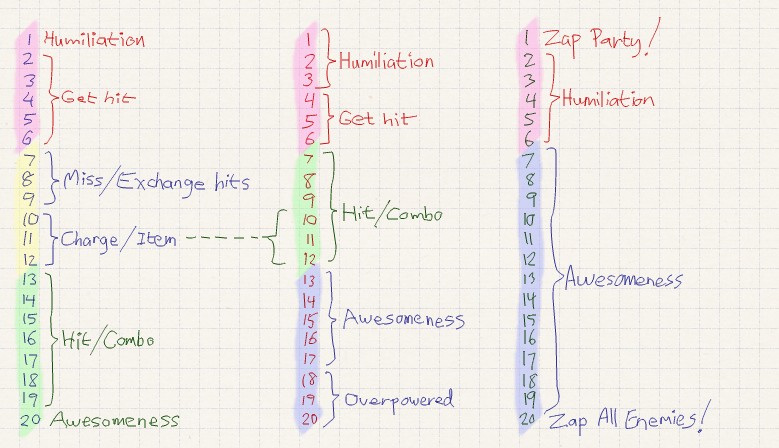 1 Humiliation
2
3
4 Get hit
5
6
7
8 Miss/Exchange hits
9
10
11 Charge/Item
12
13
14
15
16 Hit/Combo
17
18
19
20 Awesomeness
1
2 Humiliation
3
4
5 Get hit
6
7
8
9
10 Hit/Combo
11
12
13
14
15 Awesomeness
16
17
18
19 Overpowered
20
1 Zap Party!
2
3
4 Humiliation
5
6
7
8
9
10
11
12
13 Awesomeness
14
15
16
17
18
19
20 Zap All Enemies!